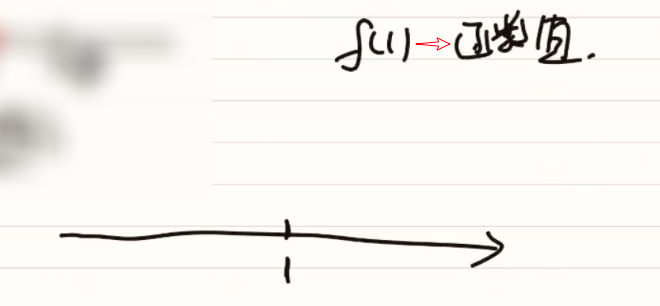 f(1)→函数值.
1